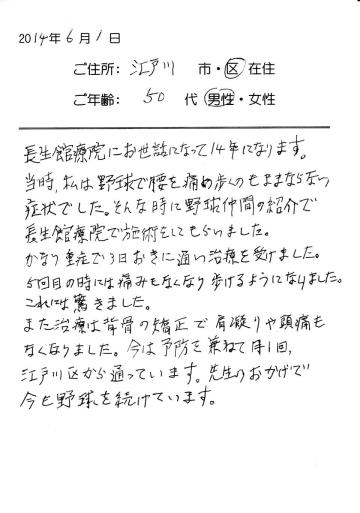 2014年6月1日
ご住所: 江戸川 市・区 在住
ご年齢: 50 代 男性・女性
長生館療院にお世話になって14年になります。
当時、私は野球で腰を痛め歩くのもままならない
症状でした。そんな時に野球仲間の紹介で
長生館療院で施術をしてもらいました。
かなり重症で3日おきに通い治療を受けました。
5回目の時には痛みもなくなり歩けるようになりました。
これには驚きました。
また治療は背骨の矯正で肩凝りや頭痛も
なくなりました。今は予防を兼ねて月1回、
江戸川区から通っています。先生のおかげで
今も野球を続けています。